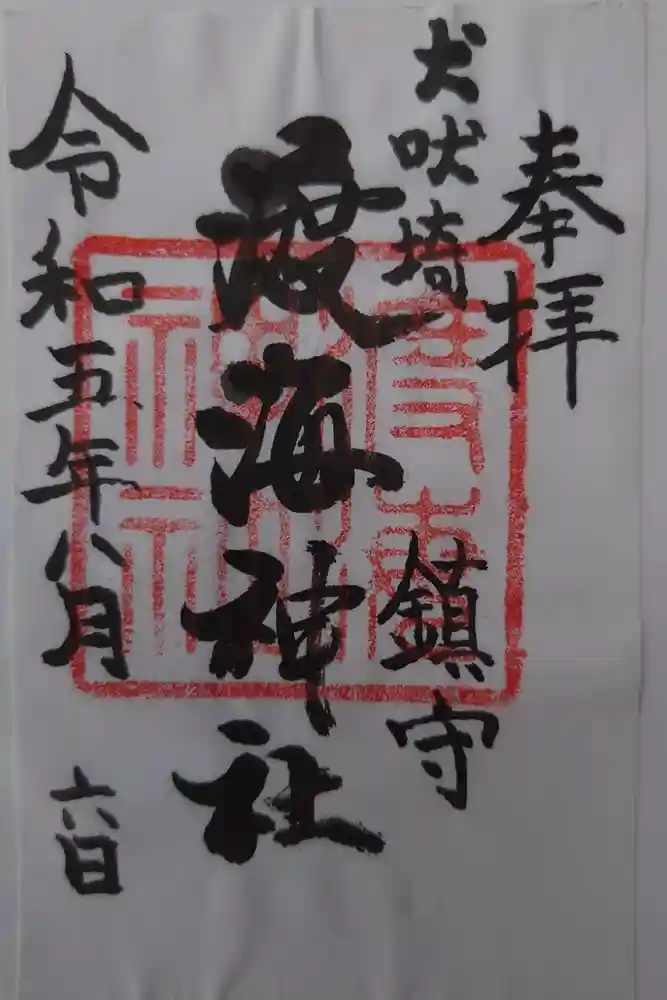 奉拝
犬吠埼 鎮守
渡海神社
令和五年八月 六日